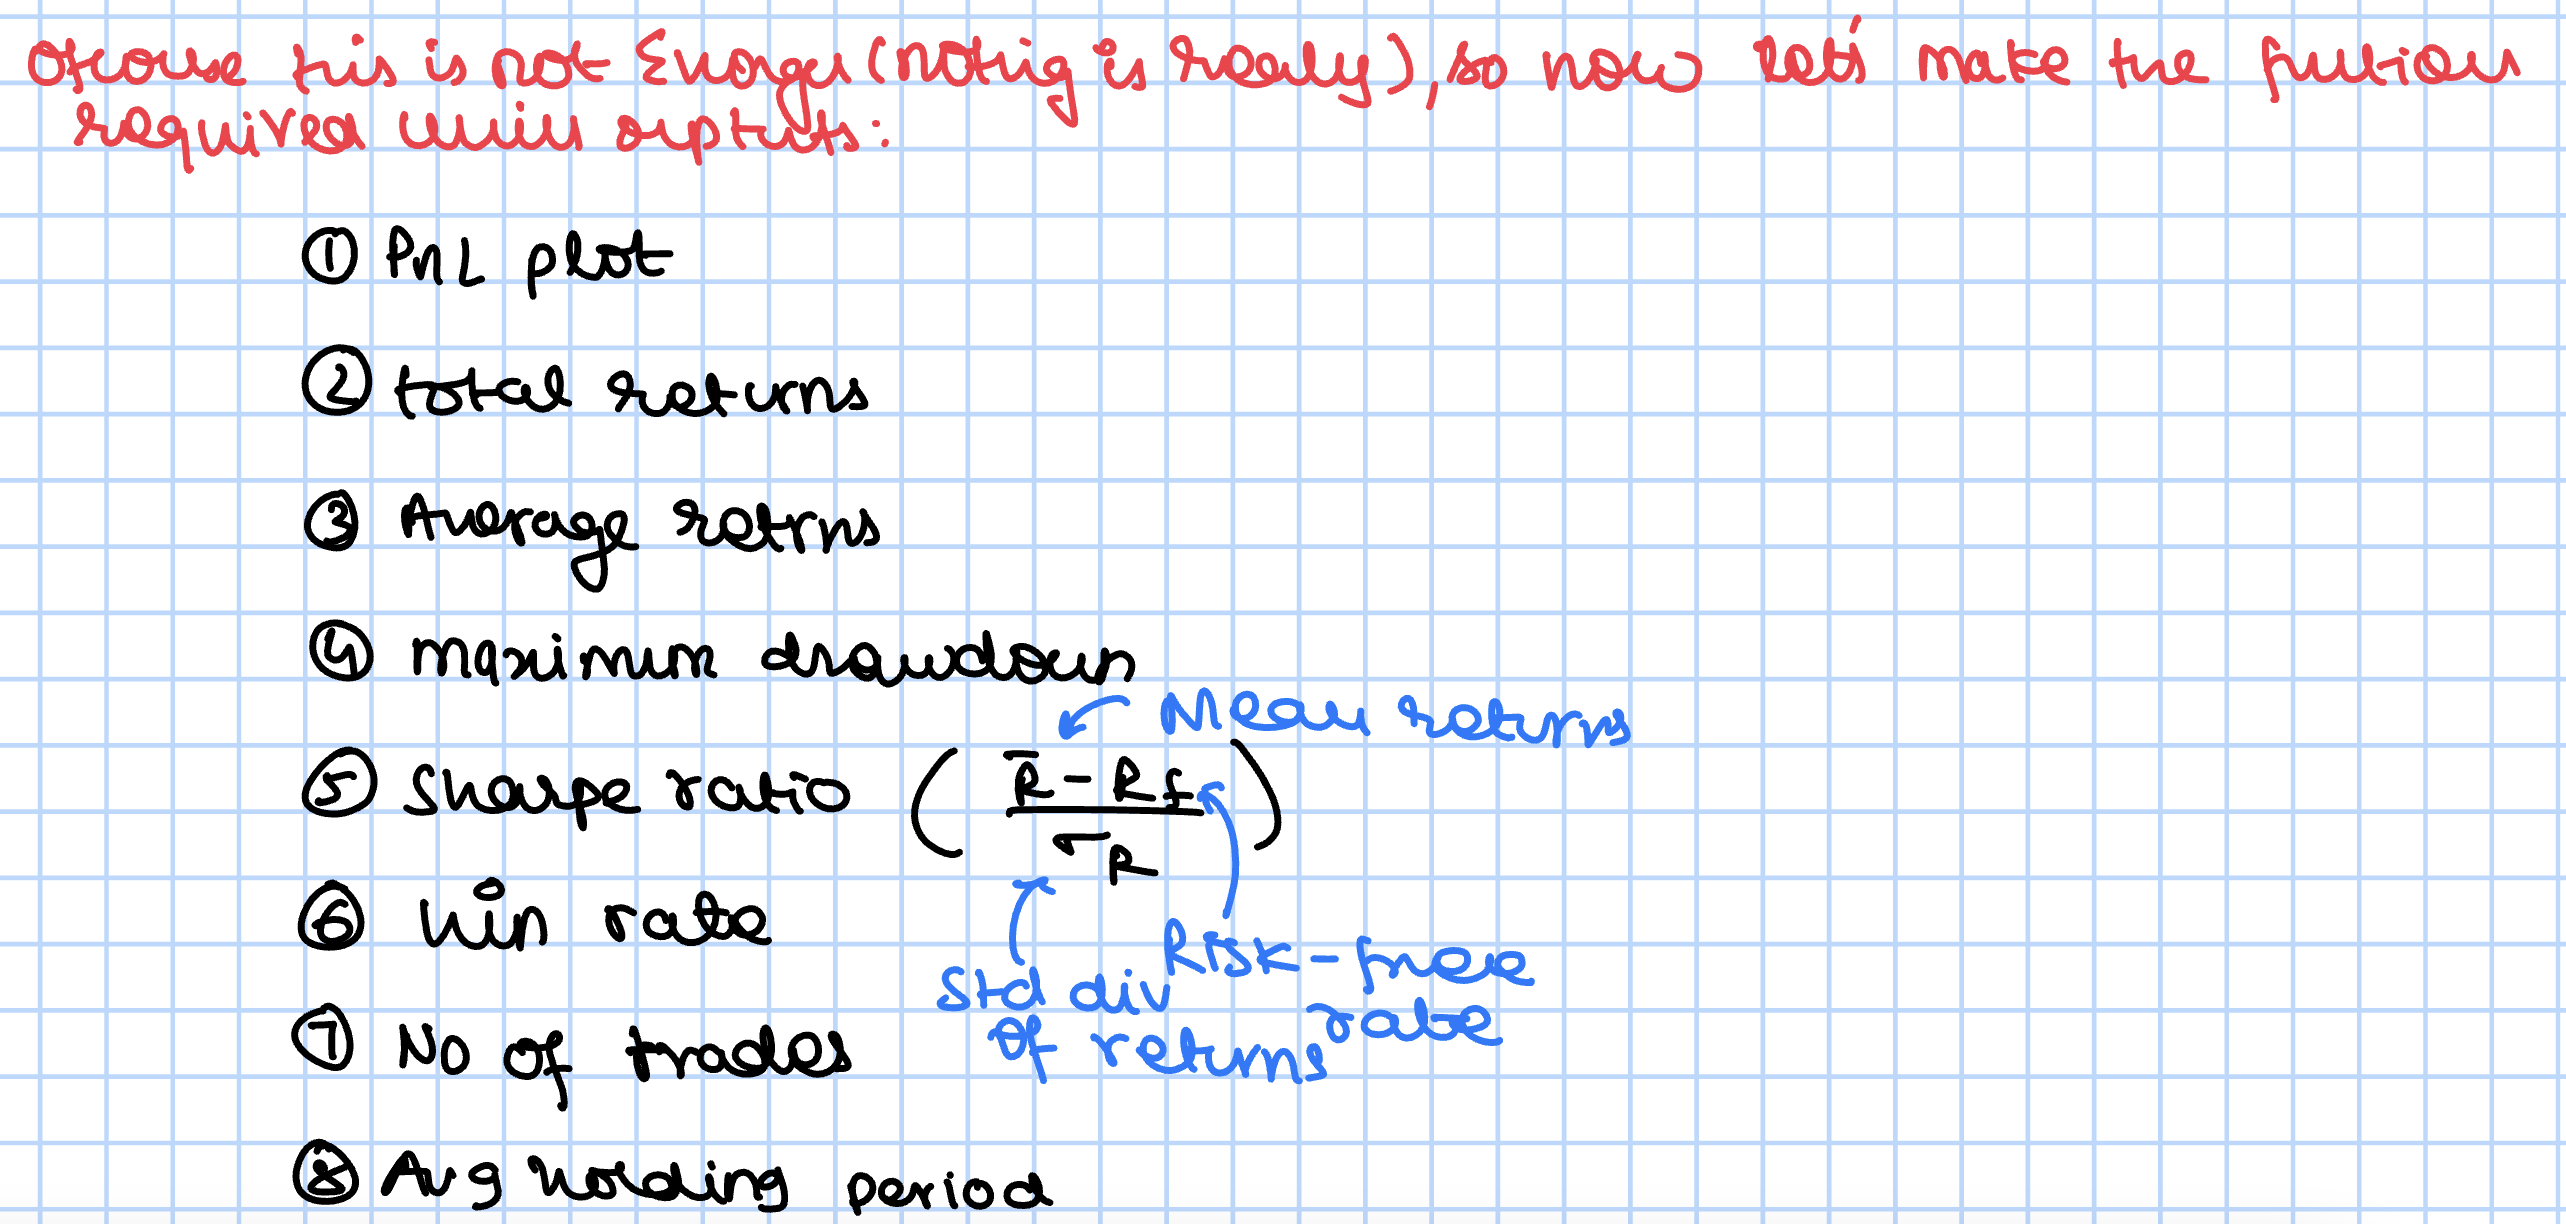 Ofcourse this is not Enough (nothing is really), so now let's make the
required which outputs:
① PnL plot
② total returns
③ Average retrns
④ maximum drawdown
Mean returns
⑤ Sharpe ratio ( (R̄ - Rf) / σR )
⑥ win rate
Risk-free
rate
Std div
of returns
⑦ No of trades
⑧ Avg holding period